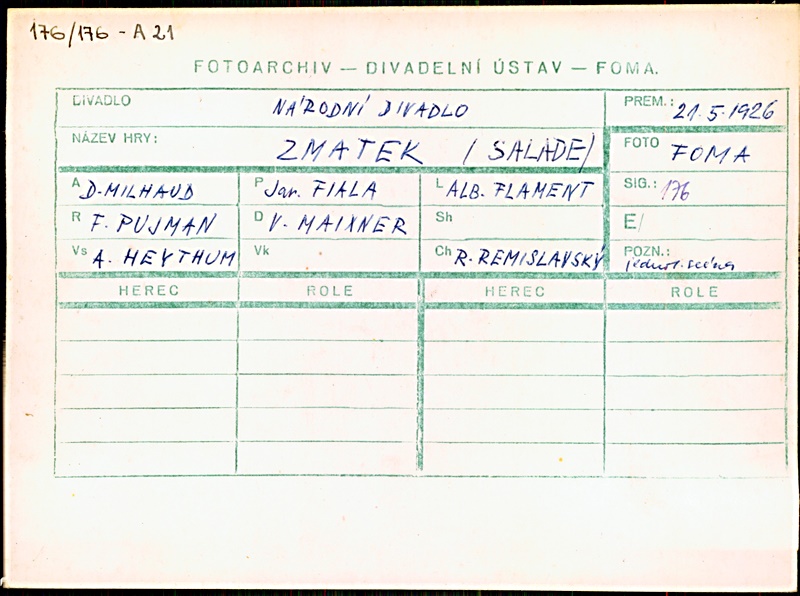 176/176 - A 21
FOTOARCHIV — DIVADELNÍ ÚSTAV — FOMA.
DIVADLO NÁRODNÍ DIVADLO PREM.: 21.5.1926
NÁZEV HRY: ZMATEK (SALADE) FOTO FOMA
A D. MILHAUD P Jar. FIALA L ALB. FLAMENT SIG.: 176
R F. PUJMAN D V. MAIXNER Sh E/
Vs A. HEYTHUM Vk Ch R. REMISLAVSKÝ POZN.:
HEREC ROLE HEREC ROLE